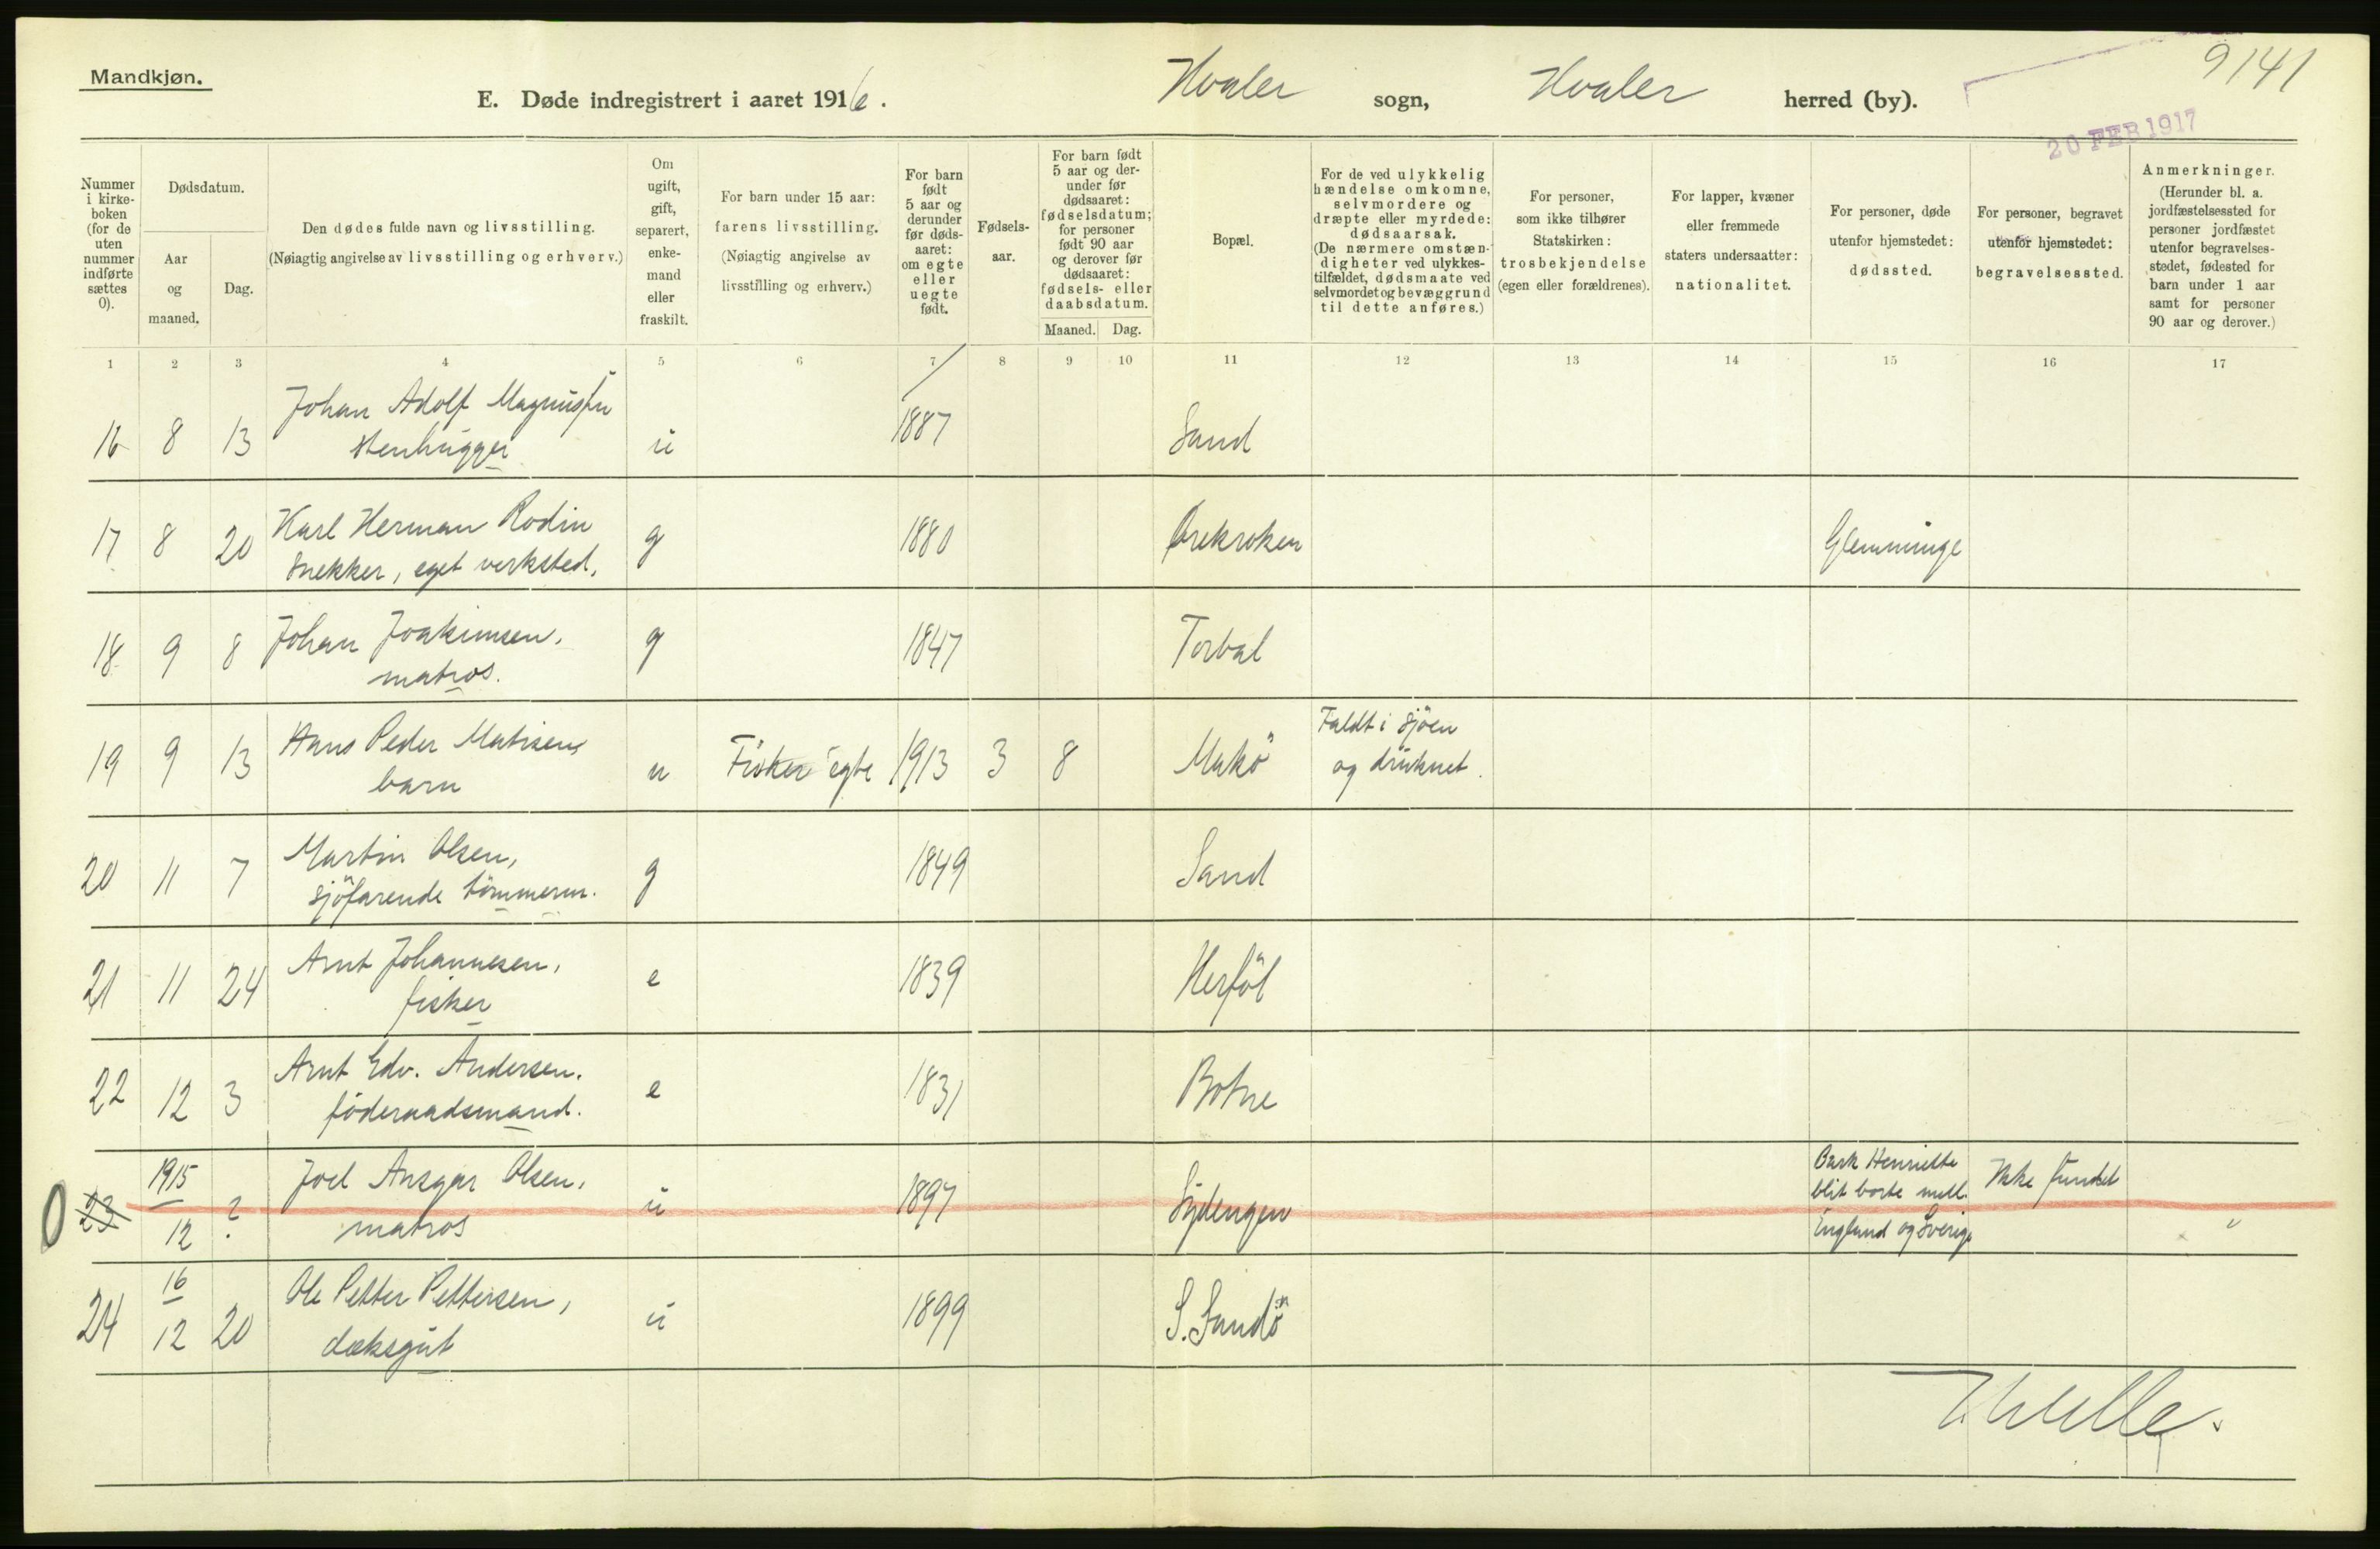 Mandkjøn.
9141
E. Døde indregistrert i aaret 1916. Hvaler sogn, Hvaler herred (by).
20 FEB 1917
Nummer i kirke-boken (for de uten nummer indførte sættes 0).
Dødsdatum.
Aar og maaned.
Dag.
Den dødes fulde navn og livsstilling.
(Nøiagtig angivelse av livsstilling og erhverv.)
Om ugift, gift, separert, enke-mand eller fraskilt.
For barn under 15 aar:
farens livsstilling.
(Nøiagtig angivelse av livsstilling og erhverv.)
For barn født 5 aar og derunder før døds-aaret: om egte eller uegte født.
Fødsels-aar.
For barn født 5 aar og der-under før dødsaaret: fødselsdatum; for personer født 90 aar og derover før dødsaaret: fødsels- eller daabsdatum.
Maaned. Dag.
Bopæl.
For de ved ulykkelig hændelse omkomne, selvmordere og dræpte eller myrdede: dødsaarsak. (De nærmere omstæn-digheter ved ulykkes-tilfældet, dødsmaate ved selvmordet og bevæggrund til dette anføres.)
For personer, som ikke tilhører Statskirken: trosbekjendelse (egen eller forældrenes).
For lapper, kvæner eller fremmede staters undersaatter: nationalitet.
For personer, døde utenfor hjemstedet: dødssted.
For personer, begravet utenfor hjemstedet: begravelsessted.
Anmerkninger.
(Herunder bl. a. jordfæstelsessted for personer jordfæstet utenfor begravelses-stedet, fødested for barn under 1 aar samt for personer 90 aar og derover.)
1 2 3 4 5 6 7 8 9 10 11 12 13 14 15 16 17
16 8 13 Johan Adolf Magnussen u 1887 Sand
stenhugger
17 8 20 Karl Herman Rodin g 1880 Ørekroken Glemminge
Snekker, eget verksted.
18 9 8 Johan Joakimsen, g 1847 Torbal
matros.
19 9 13 Hans Peder Matisen, u Fisker egte 1913 3 8 Makö Faldt i sjöen
barn og druknet.
20 11 7 Martin Olsen, g 1849 Sand
sjöfarende tömmerm.
21 11 24 Arnt Johannesen, e 1839 Herföl
fisker
22 12 3 Arnt Edv. Andersen. e 1831 Botne
föderaadsmand.
0 23 1915 12 ? Joel Ansgar Olsen, u 1897 Sydengen Bark Henriette Ikke fundet
matros blit borte mell.
England og Sverige
24 16 12 20 Ole Petter Pettersen, u 1899 S. Sandö
dæksgut